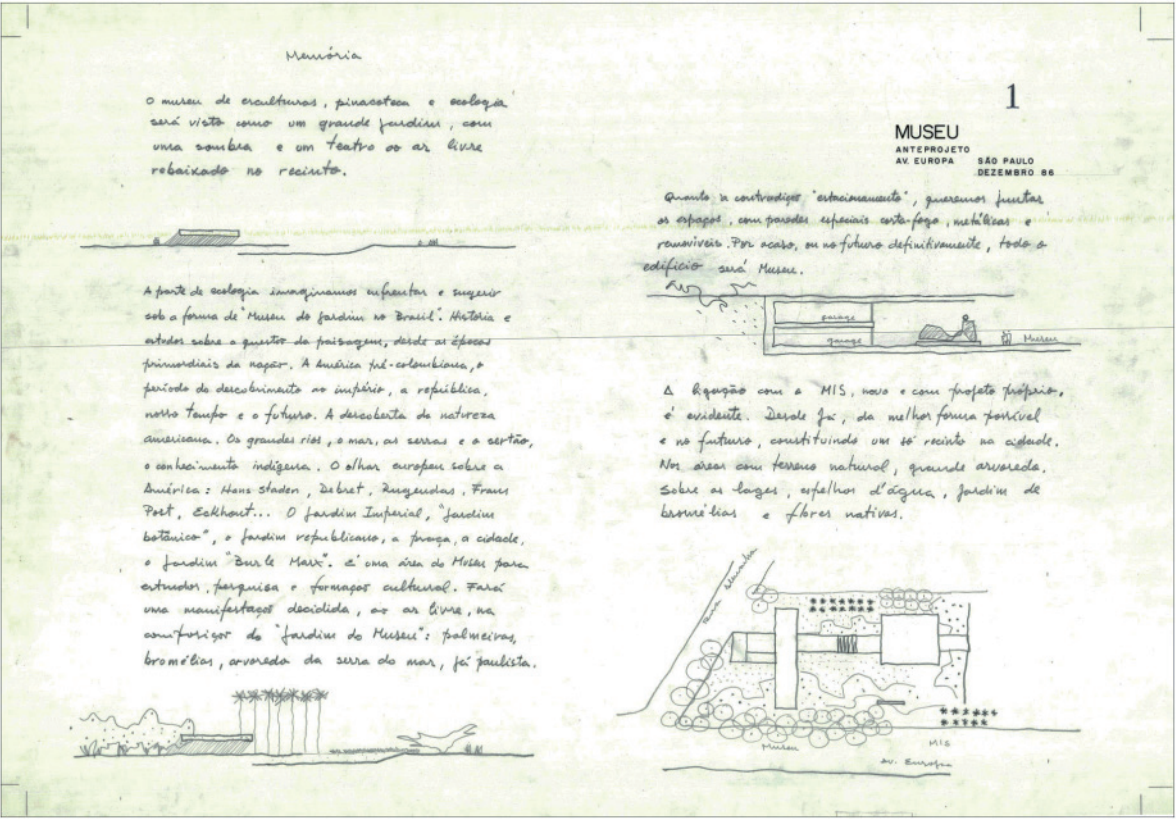 Memória
O museu de esculturas, pinacoteca e ecologia
será visto como um grande jardim, com
uma sombra e um teatro ao ar livre
rebaixado no recinto.
A parte de ecologia imaginamos enfrentar e sugerir
sob a forma de "Museu do Jardim no Brasil". História e
estudos sobre a questão da paisagem, desde as épocas
primordiais da nação. A América pré-colombiana, o
período do descobrimento ao império, a república,
nosso tempo e o futuro. A descoberta da natureza
americana. Os grandes rios, o mar, as serras e o sertão,
o conhecimento indígena. O olhar europeu sobre a
América: Hans Staden, Debret, Rugendas, Frans
Post, Eckhout... O Jardim Imperial, "Jardim
botânico", o jardim republicano, a praça, a cidade,
o Jardim "Burle Marx". É uma área do Museu para
estudos, pesquisa e formação cultural. Fará
uma manifestação decidida, ao ar livre, na
composição do "Jardim do Museu": palmeiras,
bromélias, arvoredo da serra do mar, já paulista.
1
MUSEU
ANTEPROJETO
AV. EUROPA SÃO PAULO
DEZEMBRO 86
Quanto à contradição "estacionamento", queremos juntar
os espaços, com paredes especiais corta-fogo, metálicas e
removíveis. Por acaso, ou no futuro definitivamente, todo o
edifício será Museu.
garage
garage
Museu
A ligação com o MIS, novo e com projeto próprio,
é evidente. Desde já, da melhor forma possível
e no futuro, constituindo um só recinto na cidade.
Nas áreas com terreno natural, grande arvoredo.
Sobre as lages, espelhos d'água, jardim de
bromélias e flores nativas.
Museu
MIS
Av. Europa